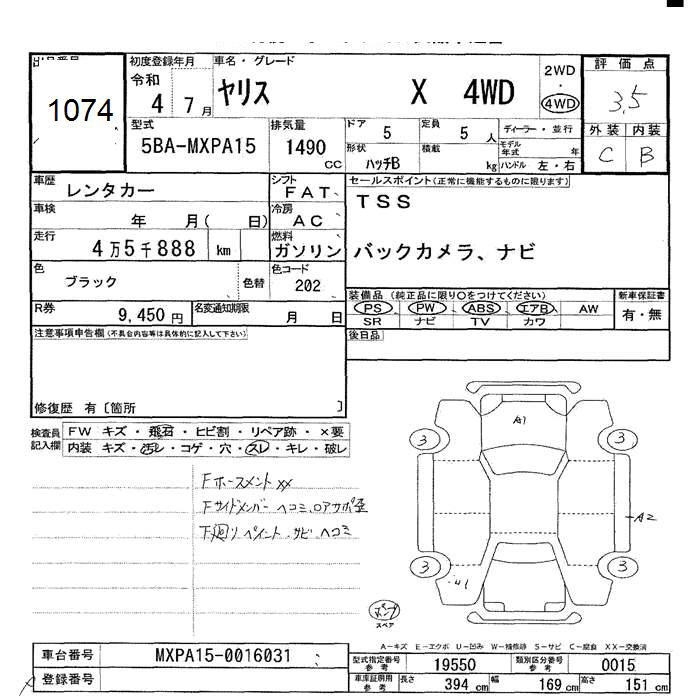 出品番号
1074
初度登録年月
令和
4 7月
車名・グレード
ヤリス X 4WD
2WD
・
4WD
評価点
3.5
外装 内装
C B
型式
5BA-MXPA15
排気量
1490
CC
ドア
5
定員
5 人
ディーラー・並行
形状
ハッチB
積載
kg
モデル年式 年
ハンドル 左・右
車歴
レンタカー
シフト
FAT
セールスポイント(正常に機能するものに限ります)
TSS
車検
年 月( 日)
冷房
AC
走行
4万5千888 km
燃料
ガソリン
バックカメラ、ナビ
色
ブラック
色替
色コード
202
R券
9,450円
名変通知期限
月 日
装備品 (純正品に限り○をつけてください)
PS PW ABS エアB AW
SR ナビ TV カワ
新車保証書
有・無
注意事項申告欄(不具合内容等は具体的に記入して下さい)
後日品
修復歴 有〔箇所 〕
検査員
記入欄
FW キズ・飛石・ヒビ割・リペア跡・×要
内装 キズ・汚レ・コゲ・穴・スレ・キレ・破レ
Fホースメント XX
Fサイドメンバーヘコミ、ロアサポ歪
下廻りペイント、サビ、ヘコミ
A1
3
3
A2
3
3
U1
パンク
スペア
A－キズ E－エクボ U－凹み W－補修跡 S－サビ C－腐食 XX－交換済
車台番号
MXPA15-0016031
登録番号
型式指定番号
参考
19550
類別区分番号
参考
0015
車庫証明用
参考
長さ 394 cm
幅 169 cm
高さ 151 cm